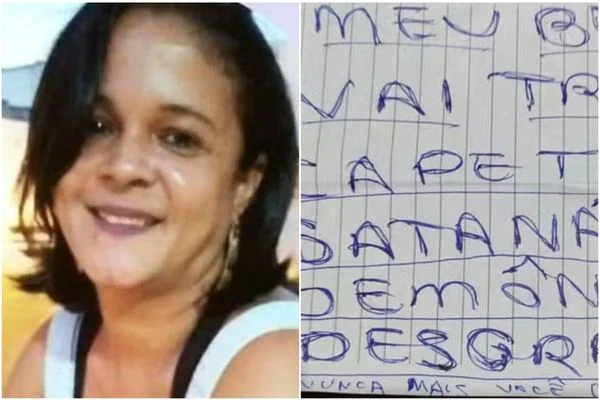 MEU B
VAI TR
CAPET
SATANÁ
DEMÔN
DESGR
NUNCA MAIS VOCÊ